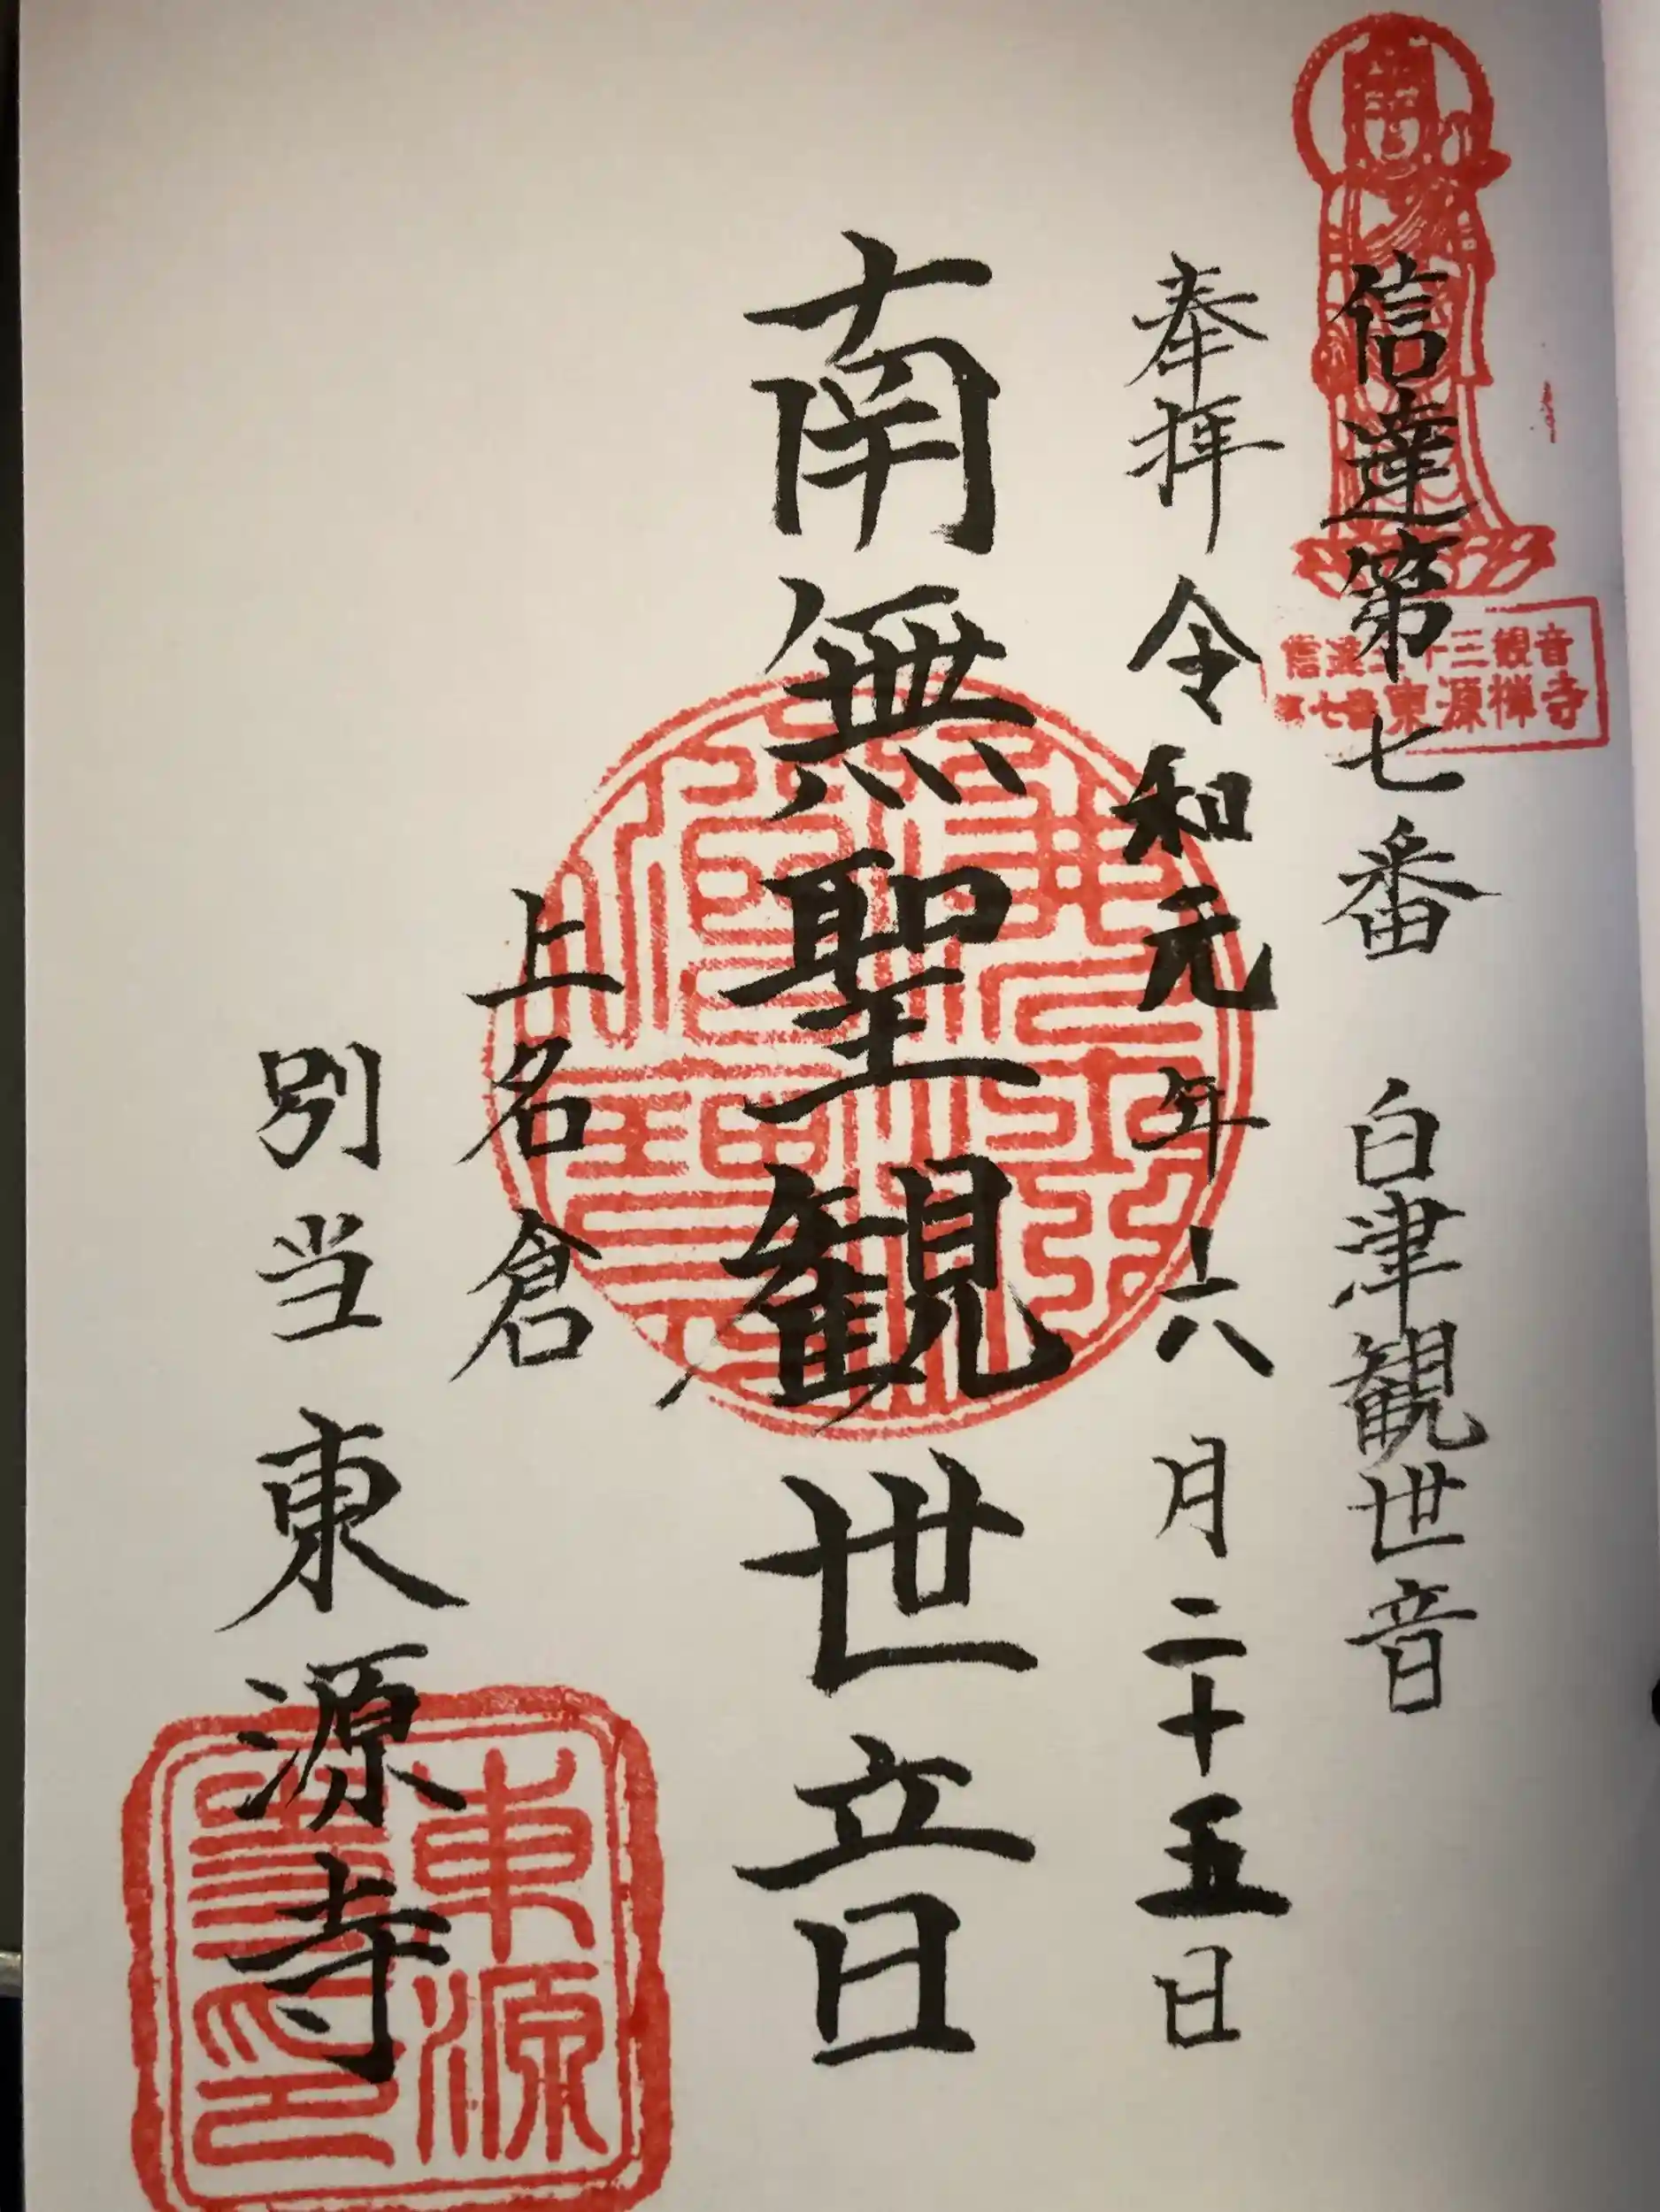 信達第七番 白津観世音
信達三十三観音
第七番東源禅寺
奉拝 令和元年六月二十五日
南無聖観世音
上名倉
別当 東源寺
東源